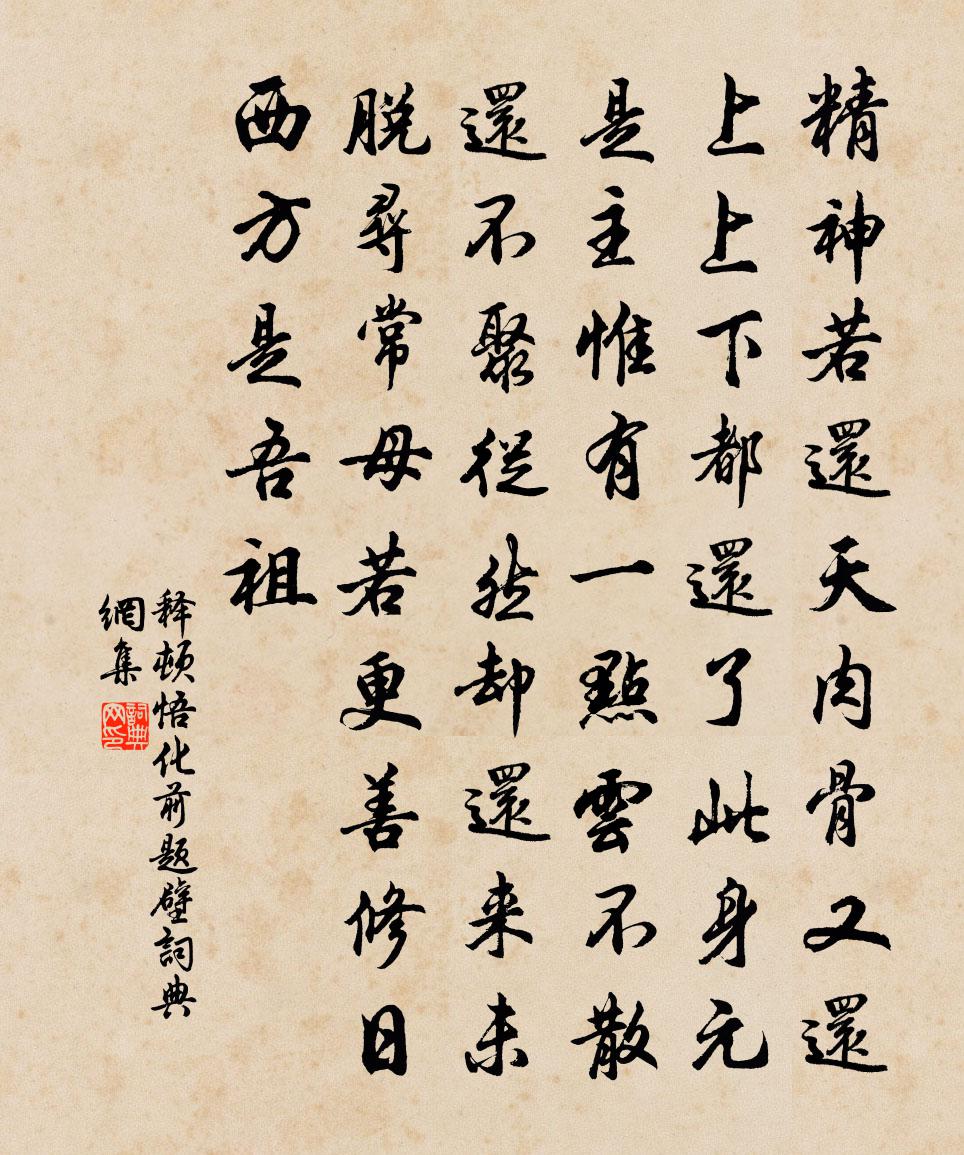 精神若還天肉骨又還
上上下都還了此身元
是主惟有一點雲不散
還不聚從然却還来未
脱尋常母若更善修日
西方是吾祖
释頓悟化前题壁詞典
網集
詞典
网印